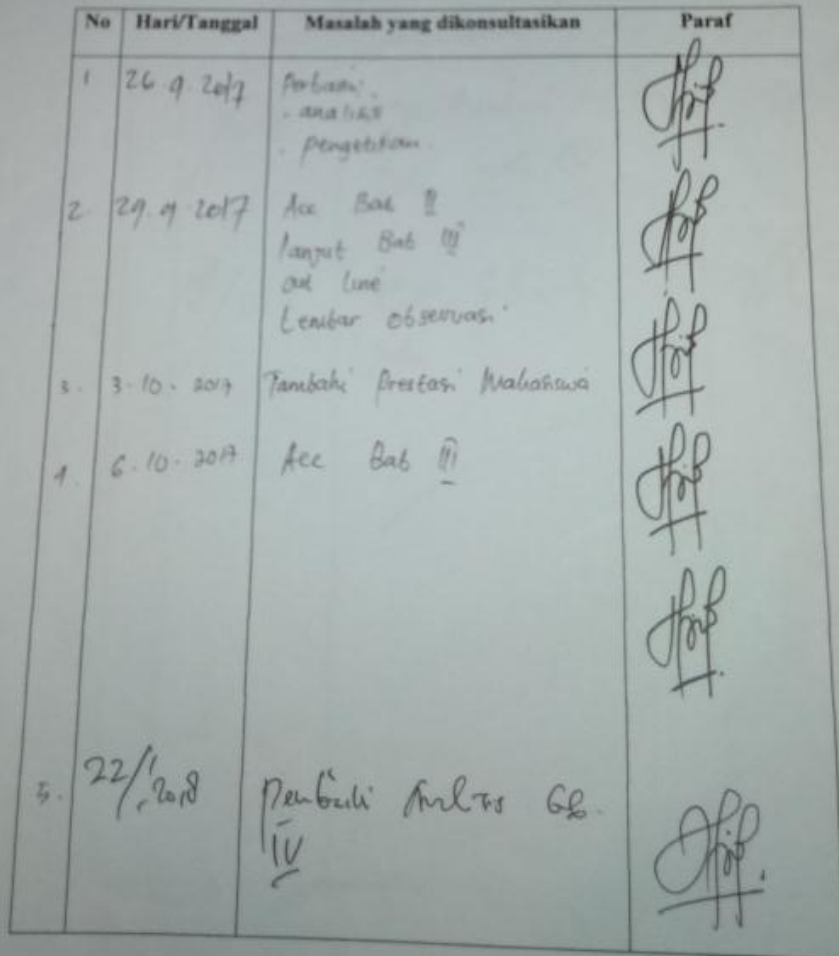 No Hari/Tanggal Masalah yang dikonsultasikan Paraf
1 26.9.2017 Perbaiki:
- analisis
- pengetikan
2. 29.9.2017 Acc Bab II
lanjut Bab III
out line
Lembar observasi
3. 3-10-2017 Tambahi Prestasi Mahasiswa
4. 6.10.2017 Acc Bab III
5. 22/1 2018
IV